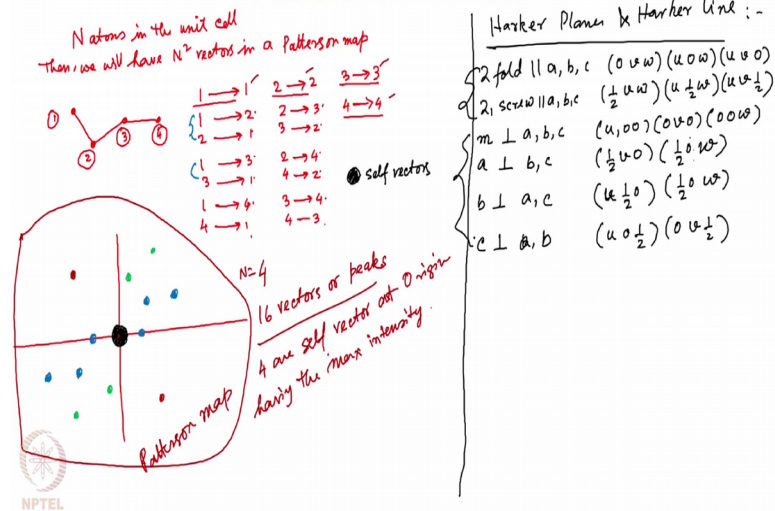 N atoms in the unit cell
Then, we will have N² vectors in a Patterson map
1 → 1 2 → 2 3 → 3
1 → 2 2 → 3 4 → 4
2 → 1 3 → 2
1 → 3 2 → 4
3 → 1 4 → 2
1 → 4 3 → 4
4 → 1 4 – 3
① ② ③ ④
self vectors
N=4
16 vectors or peaks
4 are self vector at Origin
having the max intensity.
Patterson map
NPTEL
Harker Planes & Harker line :-
2 fold || a, b, c (0 v w) (u 0 w) (u v 0)
2₁ screw || a, b, c (½ v w) (u ½ w) (u v ½)
m ⊥ a, b, c (u, 0 0) (0 v 0) (0 0 w)
a ⊥ b, c (½ v 0) (½ 0 w)
b ⊥ a, c (u ½ 0) (½ 0 w)
c ⊥ a, b (u 0 ½) (0 v ½)